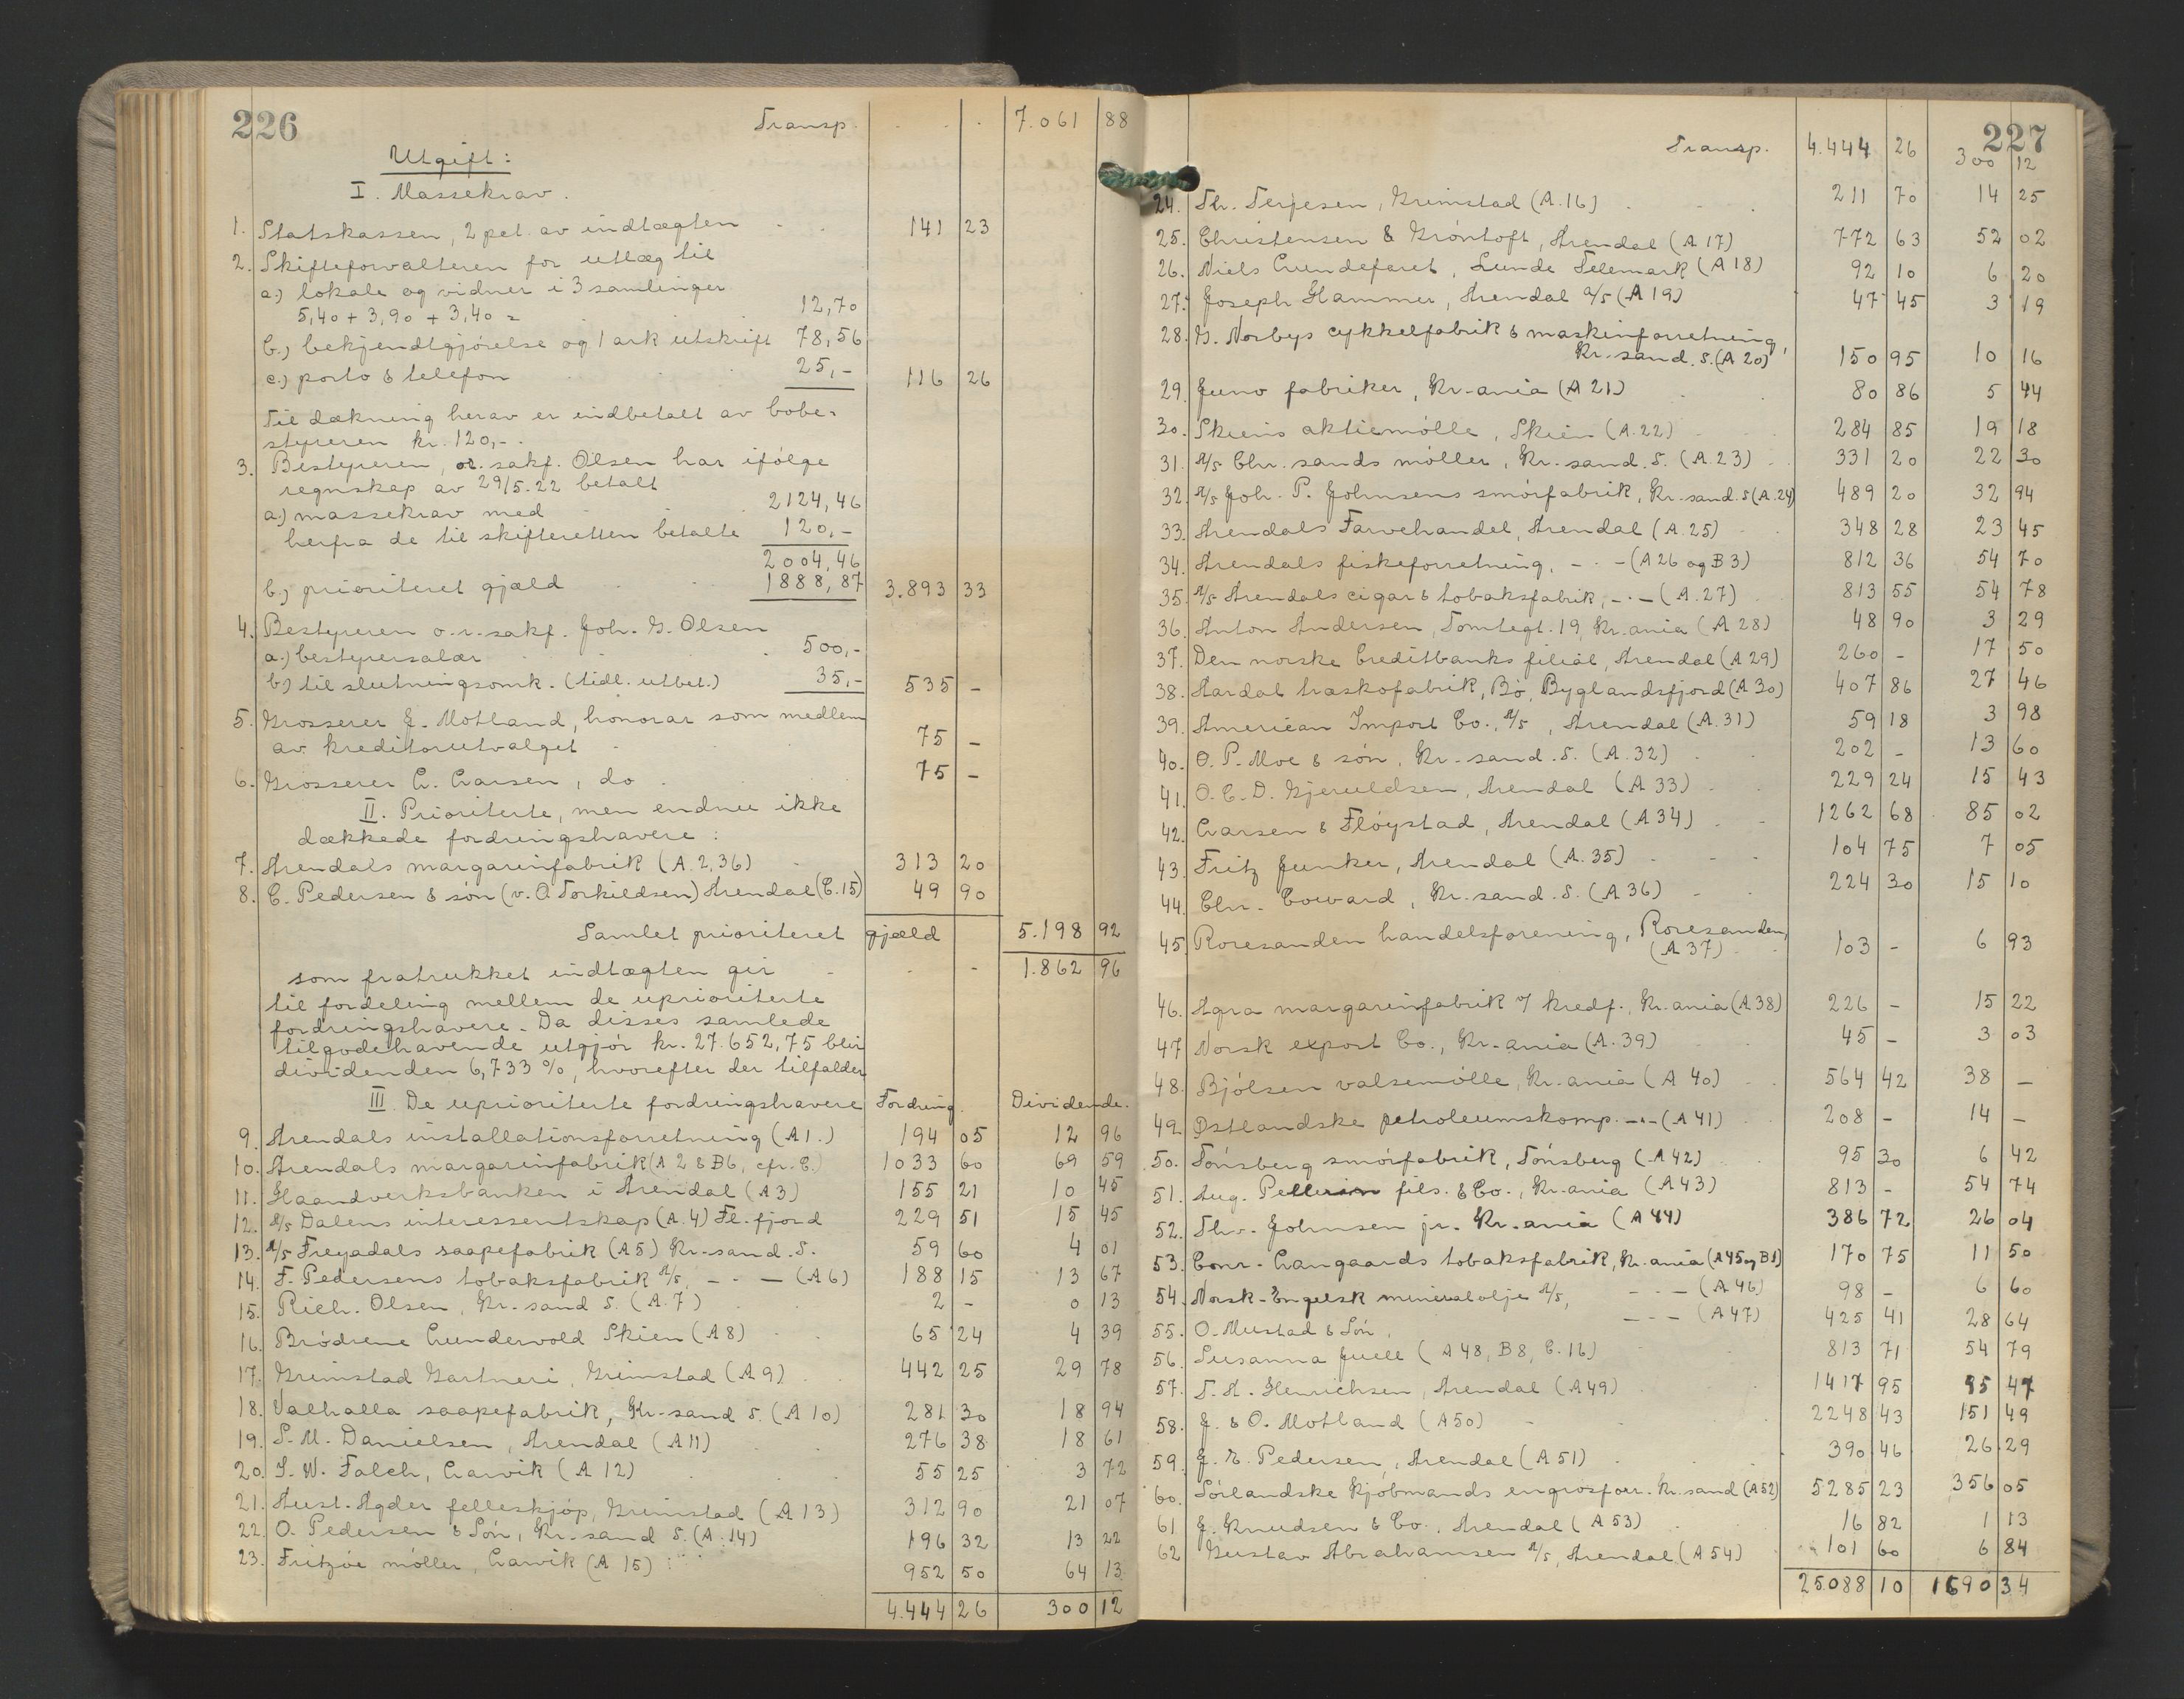 226
Transp. . . . 7.061 88
Utgift:
I. Massekrav.
1. Statskassen, 2 pct. av indtægten . . 141 23
2. Skifteforvalteren for utlæg til
a.) lokale og vidner i 3 samlinger
5,40 + 3,90 + 3,40 = . . . 12,70
b.) bekjendtgjørelse og 1 ark utskrift 78,56
c.) porto & telefon . . . 25,- 116 26
Til dækning herav er indbetalt av bobe-
styreren kr. 120,-.
3. Bestyreren, o.r.sakf. Olsen har ifølge
regnskap av 29/5.22 betalt
a.) massekrav med . . 2124,46
herfra de til skifteretten betalte 120,-
2004,46
b.) prioriteret gjæld . . 1888,87 3.893 33
4. Bestyreren o.r.sakf. Joh. G. Olsen
a.) bestyrersalær . . . 500,-
b) til slutningsomk. (tidl. utbet.) 35,- 535 -
5. Grosserer J. Motland, honorar som medlem
av kreditorutvalget . . 75 -
6. Grosserer C. Larsen, do . 75 -
II. Prioriterte, men endnu ikke
dækkede fordringshavere:
7. Arendals margarinfabrik (A. 2, 36) . 313 20
8. C. Pedersen & søn (v. O. Torkildsen) Arendal (C. 15) 49 90
Samlet prioriteret gjæld 5.198 92
som fratrukket indtægten gir - . - 1.862 96
til fordeling mellem de uprioriterte
fordringshavere. Da disses samlede
tilgodehavende utgjør kr. 27.652,75 blir
dividenden 6,733 %, hvorefter der tilfalder
III. De uprioriterte fordringshavere Fordring. Dividende.
9. Arendals installationsforretning (A1.) 194 05 12 96
10. Arendals margarinfabrik (A 2 & B6, cfr. C.) 1033 60 69 59
11. Haandverksbanken i Arendal (A3) 155 21 10 45
12. A/S Dalens interessentskap (A. 4) Fl. fjord 229 51 15 45
13. A/S Freyadals saapefabrik (A5) Kr.-sand. S. 59 60 4 01
14. F. Pedersens tobaksfabrik A/S, - · - (A 6) 188 15 13 67
15. Rich. Olsen, Kr. sand S. (A. 7) 2 - 0 13
16. Brødrene Lundervold Skien (A8) 65 24 4 39
17. Grimstad Gartneri, Grimstad (A 9) 442 25 29 78
18. Valhalla saapefabrik, Kr.-sand S. (A 10) 281 30 18 94
19. S. M. Danielsen, Arendal (A 11) 276 38 18 61
20. I. W. Falch, Larvik (A 12) 55 25 3 72
21. Aust-Agder felleskjøp, Grimstad (A 13) 312 90 21 07
22. O. Pedersen & Søn, Kr.-sand S. (A. 14) 196 32 13 22
23. Fritzøe møller, Larvik (A 15) 952 50 64 13
4.444 26 300 12
227
Transp. 4.444 26 300 12
24. Th. Terjesen, Grimstad (A. 16) . . . 211 70 14 25
25. Christensen & Grøntoft, Arendal (A 17) 772 63 52 02
26. Niels Lundefaret, Lunde Telemark (A 18) 92 10 6 20
27. Joseph Hammer, Arendal A/S (A 19) 47 45 3 19
28. G. Norbys cykkelfabrik & maskinforretning,
Kr.-sand. S. (A 20) 150 95 10 16
29. Juno fabriker, Kr-ania (A 21) 80 86 5 44
30. Skiens aktiemølle, Skien (A. 22) 284 85 19 18
31. A/S Chr. sands møller, Kr. sand. S. (A. 23) 331 20 22 30
32. A/S Joh. P. Johnsens smørfabrik, Kr.-sand. S (A. 24) 489 20 32 94
33. Arendals Farvehandel, Arendal (A. 25) 348 28 23 45
34. Arendals fiskeforretning, - · - (A 26 og B 3) 812 36 54 70
35. A/S Arendals cigar & tobaksfabrik, - · - (A. 27) 813 55 54 78
36. Anton Andersen, Tomtegt. 19, Kr. ania (A 28) 48 90 3 29
37. Den norske Creditbanks filial, Arendal (A 29) 260 - 17 50
38. Aardal træskofabrik, Bø, Byglandsfjord (A 30) 407 86 27 46
39. American Import Co., A/S, Arendal (A. 31) 59 18 3 98
40. O. P. Moe & søn, Kr.-sand. S. (A. 32) 202 - 13 60
41. O. C. D. Gjeruldsen, Arendal (A 33) 229 24 15 43
42. Larsen & Fløystad, Arendal (A 34) 1262 68 85 02
43. Fritz Junker, Arendal (A. 35) 104 75 7 05
44. Chr. Coward, Kr. sand. S. (A 36) 224 30 15 10
45. Roresanden handelsforening, Roresanden,
(A 37) 103 - 6 93
46. Agra margarinfabrik v/ kredf., Kr. ania (A 38) 226 - 15 22
47. Norsk export Co., Kr-ania (A. 39) 45 - 3 03
48. Bjølsen valsemølle, Kr. ania (A 40) 564 42 38 -
49. Østlandske petroleumskomp. - · - (A 41) 208 - 14 -
50. Tønsberg smørfabrik, Tønsberg (A 42) 95 30 6 42
51. Aug. Pellerin fils. & Co., Kr. ania (A 43) 813 - 54 74
52. Thv. Johnsen jr. Kr. ania (A 44) 386 72 26 04
53. Conr. Langaards tobaksfabrik, Kr. ania (A 45 og B1) 170 75 11 50
54. Norsk-Engelsk mineralolje A/S, - · - (A 46) 98 - 6 60
55. O. Mustad & Søn, - · - (A 47) 425 41 28 64
56. Susanna Juell (A 48, B 8, C. 16) 813 71 54 79
57. T. A. Henrichsen, Arendal (A49) 1417 95 95 47
58. J. & O. Motland (A 50) 2248 43 151 49
59. J. E. Pedersen, Arendal (A 51) 390 46 26 29
60. Sørlandske Kjøbmands engrosforr. Kr. sand (A 52) 5285 23 356 05
61. J. Knudsen & Co., Arendal (A 53) 16 82 1 13
62. Gustav Abrahamsen A/S, Arendal (A 54) 101 60 6 84
25088 10 1690 34